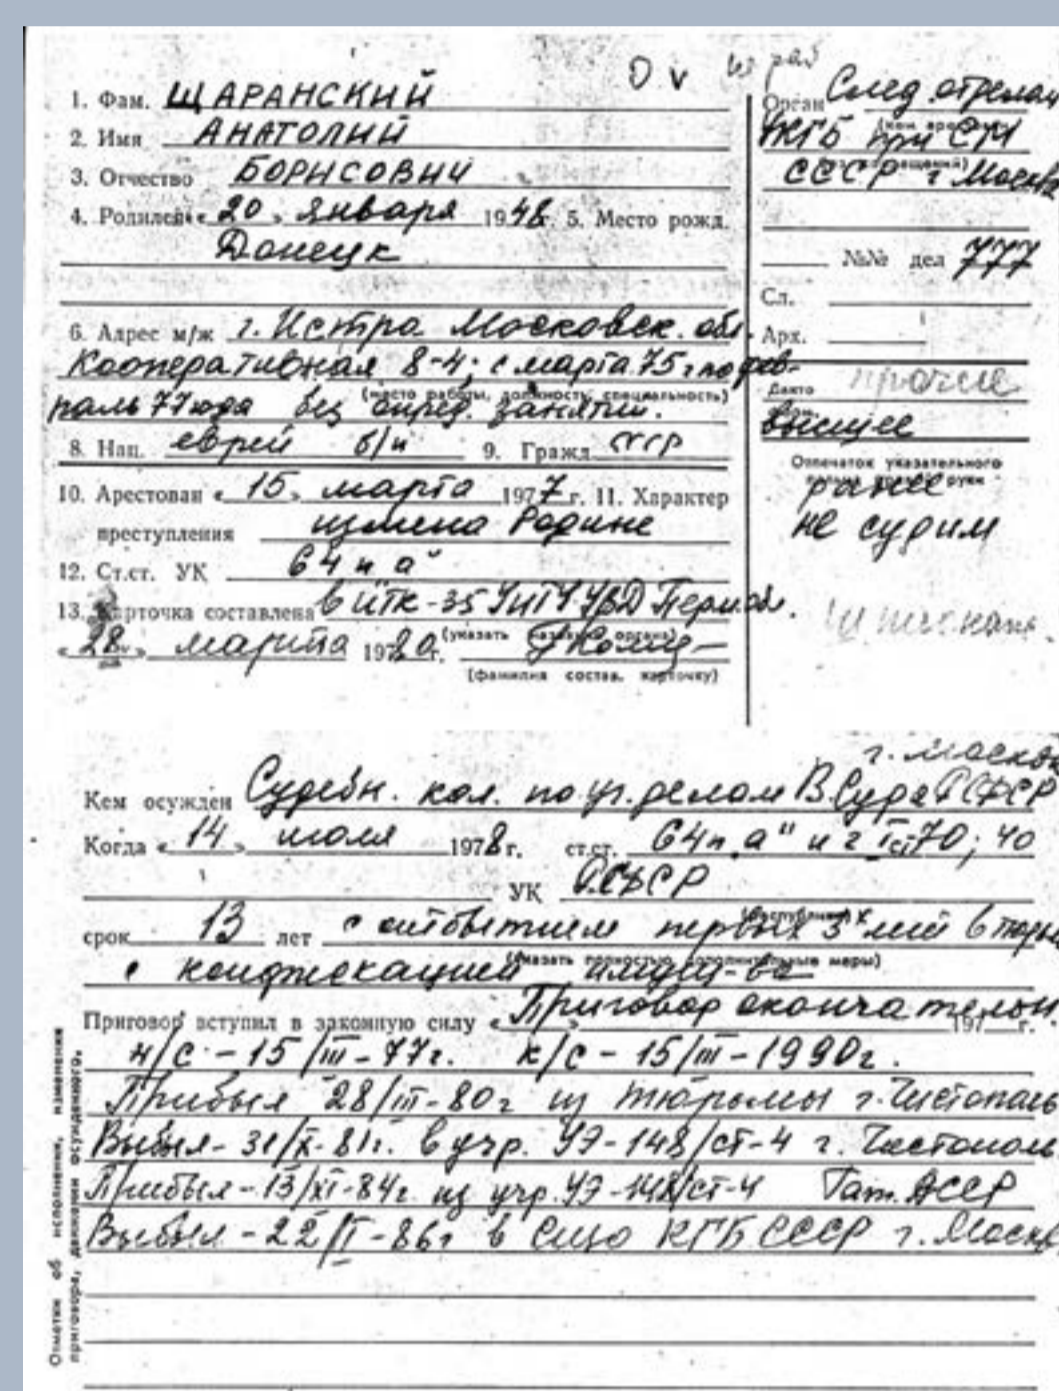 из раб
1. Фам. ЩАРАНСКИЙ
2. Имя АНАТОЛИЙ
3. Отчество БОРИСОВИЧ
4. Родился « 20 » января 1948г. 5. Место рожд.
Донецк
6. Адрес м/ж г. Истра Московск. обл.
Кооперативная 8-4; с марта 75г по фев-
(место работы, должность, специальность)
раль 77 года без опред. занятий.
8. Нац. еврей б/п 9. Гражд СССР
10. Арестован « 15 » марта 1977 г. 11. Характер
преступления измена Родине
12. Ст.ст. УК 64 п а"
13. Карточка составлена в ИТК-35 УИТУ УВД Перм. обл.
(указать название органа)
« 28 » марта 1980г.
(фамилия состав. карточку)
Орган След. отделом
(кем арестован)
УКГБ при СМ
СССР г Москва
№№ дел 777
Сл.
Арх.
Дакто прочие
высшее
Отпечаток указательного
пальца правой руки
ранее
не судим
г. Москва
Кем осужден Судебн. кол. по уг. делам В.Суда РСФСР
Когда « 14 » июля 1978г. ст.ст. 64п „а" и ч I ст 70; 40
УК РСФСР
(республика)
срок 13 лет с отбытием первых 3х лет в тюрьме
(указать полностью дополнительные меры)
с конфискацией имущ-ва
Приговор вступил в законную силу « » Приговор окончательн. 197 г.
н/с - 15/III-77г. к/с - 15/III-1990г.
Прибыл 28/III-80г из тюрьмы г. Чистополь
Выбыл - 31/X-81г. в учр. УЭ-148/ст-4 г. Чистополь
Прибыл - 13/XI-84г из учр. УЭ-148/ст-4 Тат. АССР
Выбыл - 22/I-86г в Сизо КГБ СССР г. Москва
Отметки об исполнении, изменении
приговора, движении осужденного.